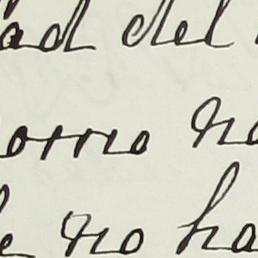 ad del
orno no
no ha